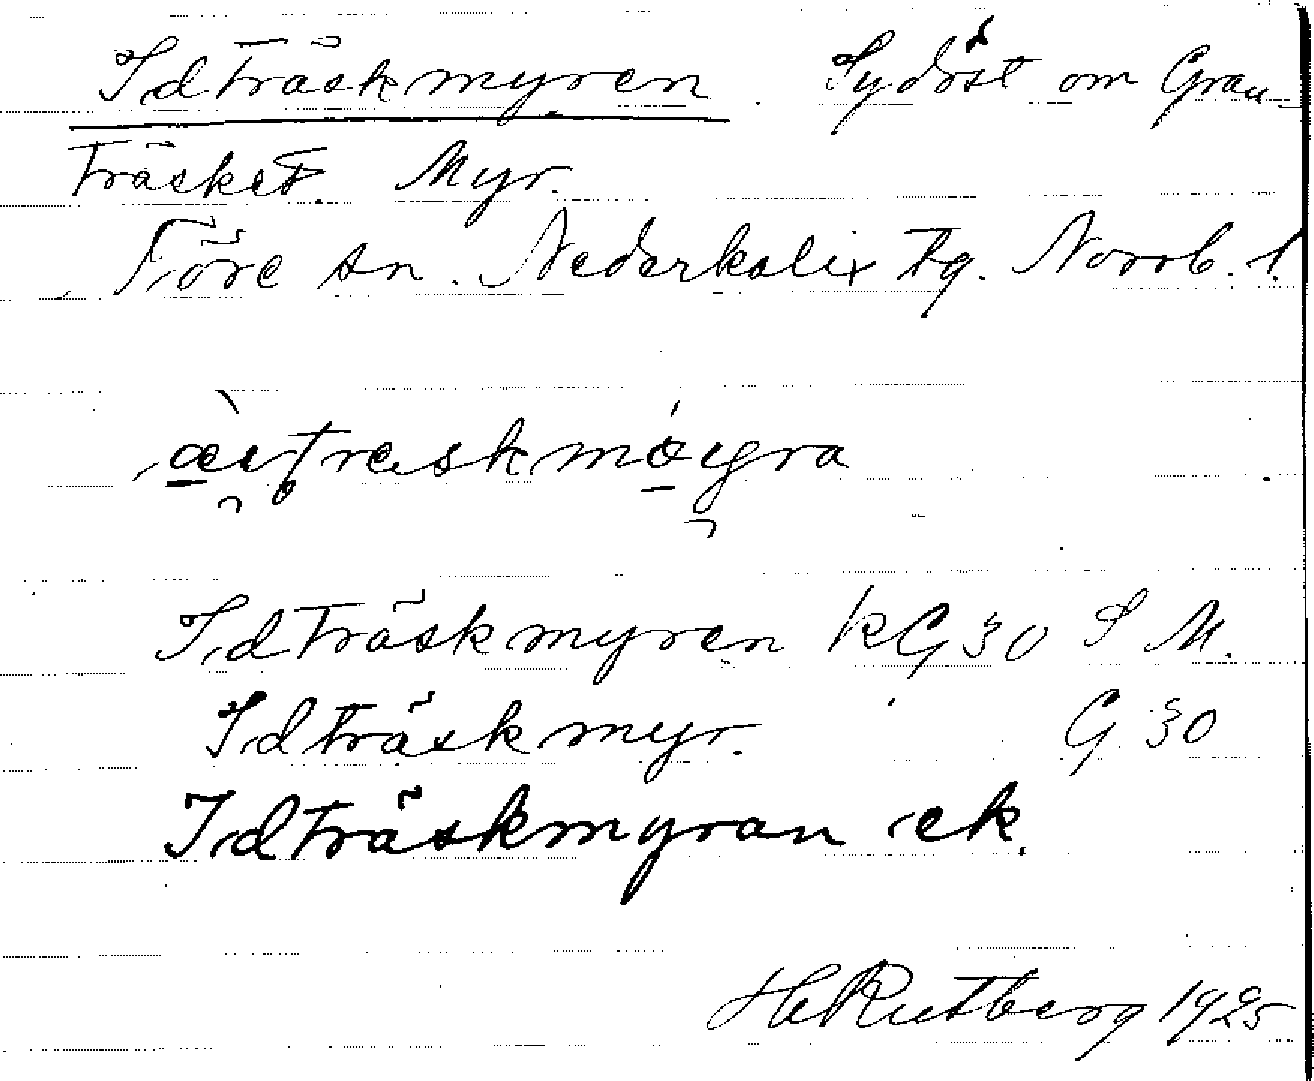 Idträskmyren. Sydöst om Gran-
träsket. Myr.
Töre sn. Nederkalix tg. Norrb. l.
Idträskmyren kG 30 S M.
Idträskmyr. G 30
Idträskmyran ek.
H Rutberg 1925